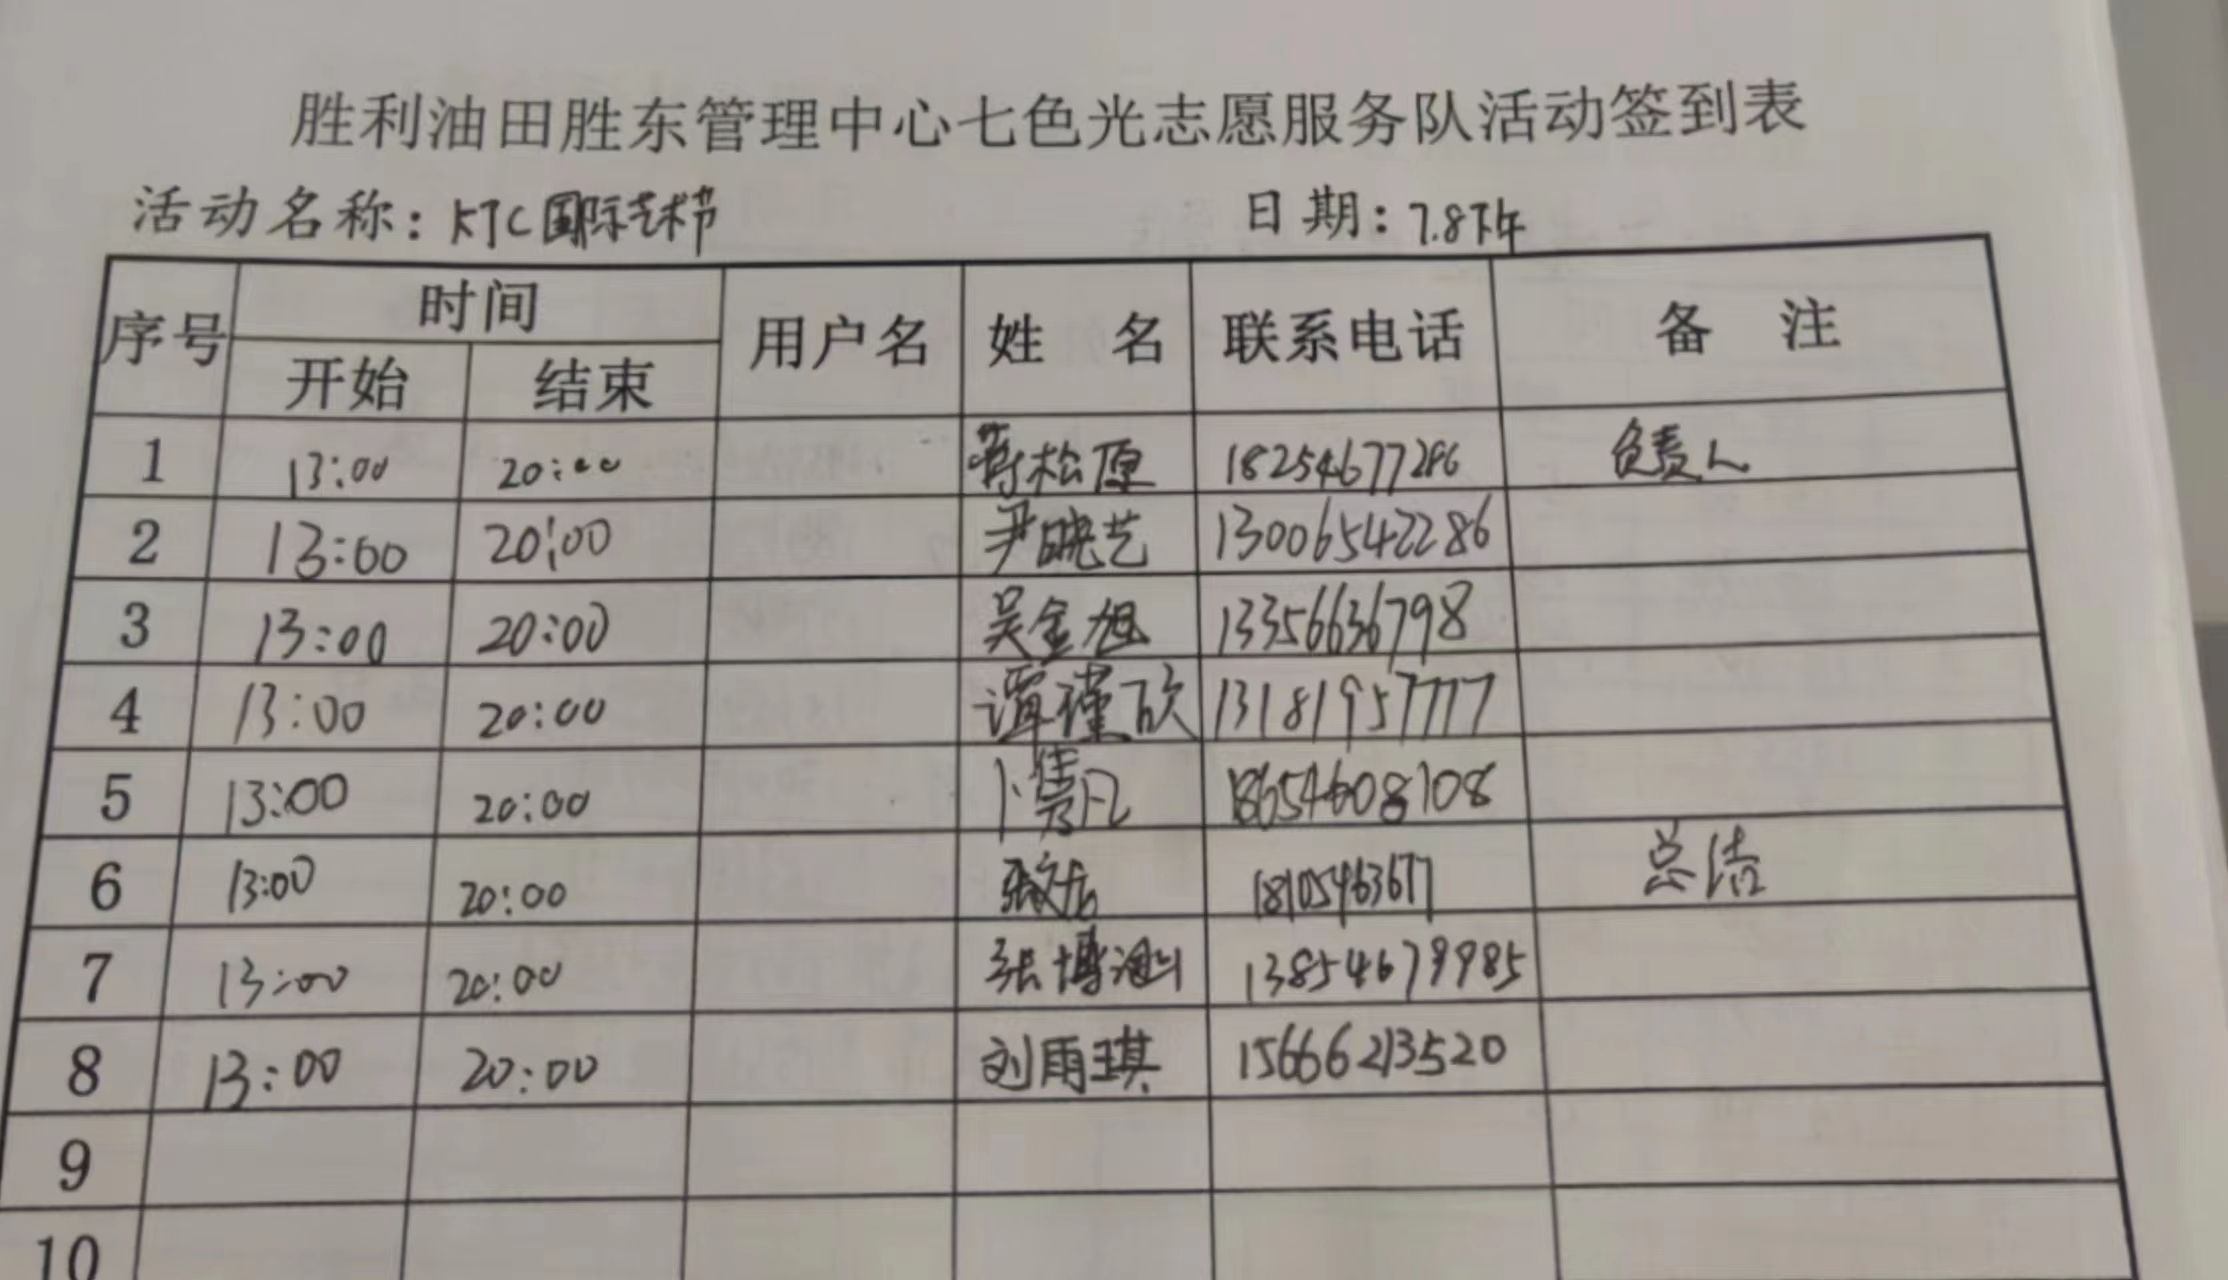 胜利油田胜东管理中心七色光志愿服务队活动签到表
活动名称：KTC国际艺术节 日期：7.8下午
序号 时间 用户名 姓 名 联系电话 备 注
开始 结束
1 13:00 20:00 蒋松原 18254677286 负责人
2 13:00 20:00 尹晓艺 13006542286
3 13:00 20:00 吴金旭 13356636798
4 13:00 20:00 谭瑾欣 13181957777
5 13:00 20:00 卜隽凡 18654608108
6 13:00 20:00 18105463677 总结
7 13:00 20:00 张博 13854679985
8 13:00 20:00 刘雨琪 15666213520
9
10